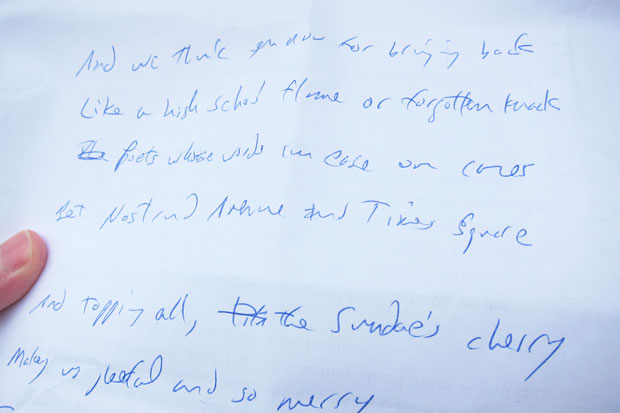 And we think you now for bringing back
Like a high school flame or forgotten knack
The Poets whose words can ease our cares
At Nostrand Avenue and Times Square
And topping all, the Sundae's cherry
Makes us gleeful and so merry